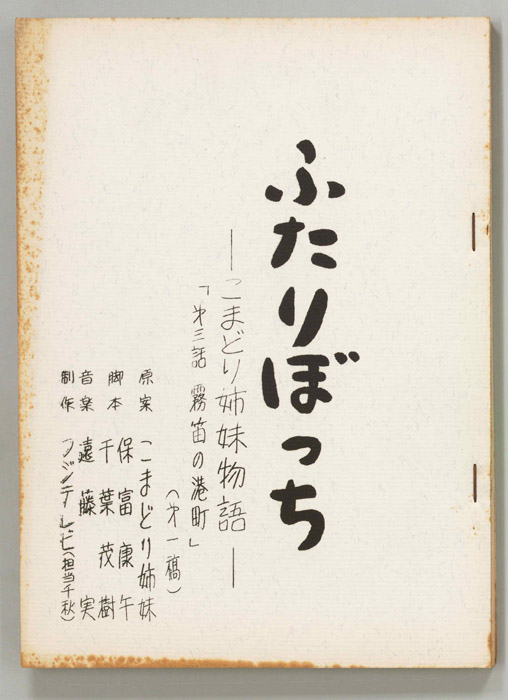 ふたりぼっち
―こまどり姉妹物語―
「第三話 霧笛の港町」
(第一稿)
原案 こまどり姉妹
脚本 保富康午
千葉茂樹
音楽 遠藤実
制作 フジテレビ(担当千秋)